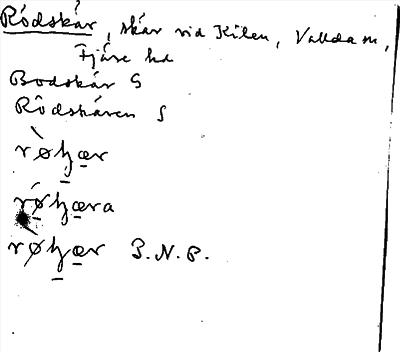 Rödskär, skär vid Kilen, Vallda sn,
Fjäre hd
Bodskär G
Rödskären S
røʖær
røʖæra
røʖær P.N.P.